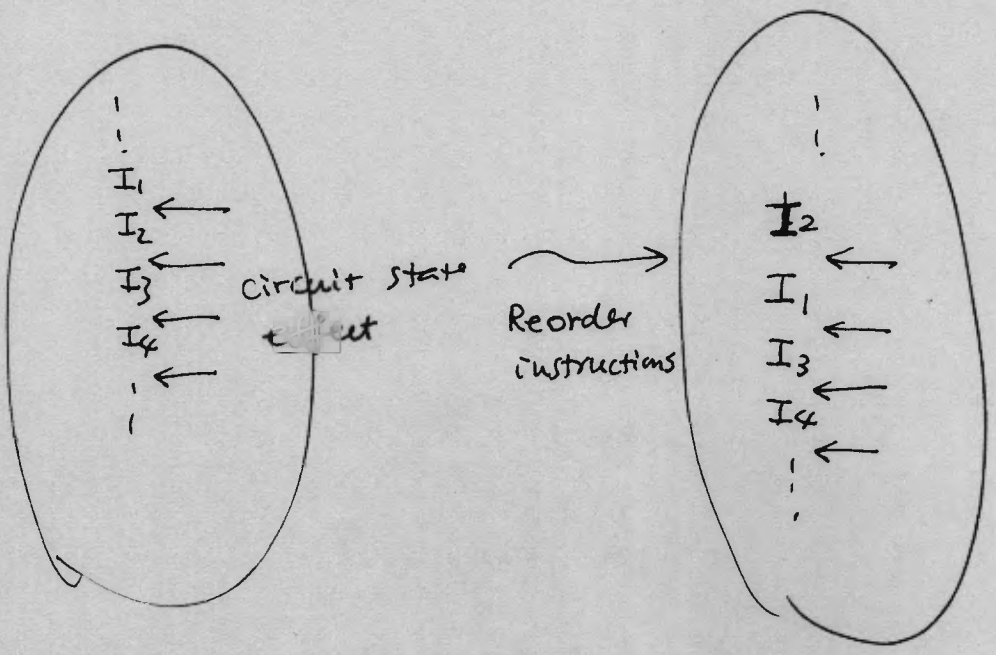 I1
I2
I3
I4
circuit state
Reorder
instructions
I2
I1
I3
I4